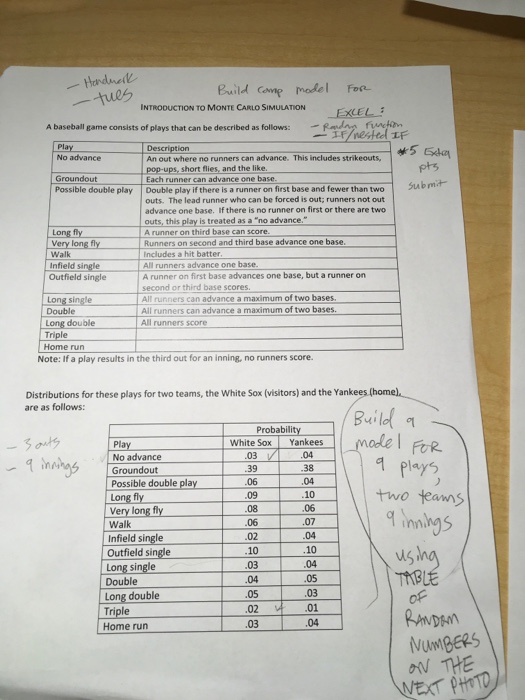 - Handwork
- tues
Build comp model FOR
INTRODUCTION TO MONTE CARLO SIMULATION
EXCEL:
- Function
- IF/nested IF
A baseball game consists of plays that can be described as follows:
#5 Extra
pts
submit
Play Description
No advance An out where no runners can advance. This includes strikeouts,
pop-ups, short flies, and the like.
Groundout Each runner can advance one base.
Possible double play Double play if there is a runner on first base and fewer than two
outs. The lead runner who can be forced is out; runners not out
advance one base. If there is no runner on first or there are two
outs, this play is treated as a "no advance."
Long fly A runner on third base can score.
Very long fly Runners on second and third base advance one base.
Walk Includes a hit batter.
Infield single All runners advance one base.
Outfield single A runner on first base advances one base, but a runner on
second or third base scores.
Long single All runners can advance a maximum of two bases.
Double All runners can advance a maximum of two bases.
Long double All runners score
Triple
Home run
Note: If a play results in the third out for an inning, no runners score.
Distributions for these plays for two teams, the White Sox (visitors) and the Yankees (home),
are as follows:
- 3 outs
- 9 innings
Probability
Play White Sox Yankees
No advance .03 .04
Groundout .39 .38
Possible double play .06 .04
Long fly .09 .10
Very long fly .08 .06
Walk .06 .07
Infield single .02 .04
Outfield single .10 .10
Long single .03 .04
Double .04 .05
Long double .05 .03
Triple .02 .01
Home run .03 .04
Build a
model FOR
9 plays,
two teams
9 innings
using
TABLE
OF
RANDOM
NUMBERS
ON THE
NEXT PHOTO